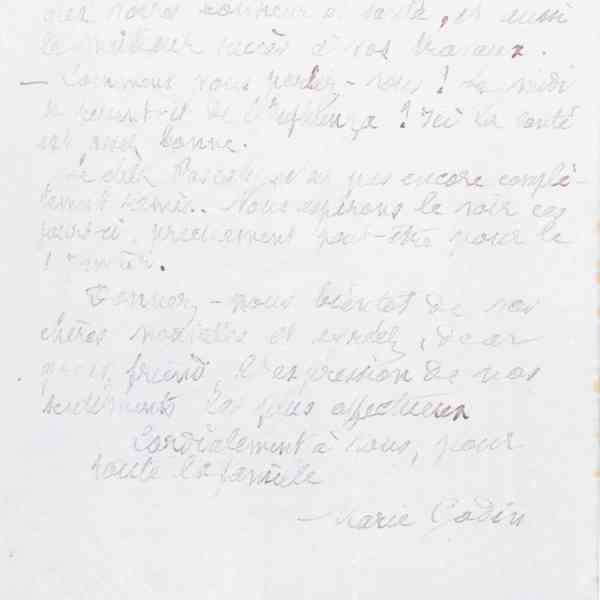 votre bonheur et santé, et aussi
le meilleur succès à vos travaux.
— Comment vous portez-vous ! Le midi
se ressent-il de l'influenza ? Ici la santé
est assez bonne.
Le cher n'est pas encore complè-
tement remis.. Nous espérons le voir ces
jours-ci, précisément peut-être pour le
1 janvier.
Donnez-nous bientôt de vos
chères nouvelles et agréez, dear
friend, l'expression de nos
sentiments les plus affectueux
Cordialement à vous, pour
toute la famille
— Marie Godin